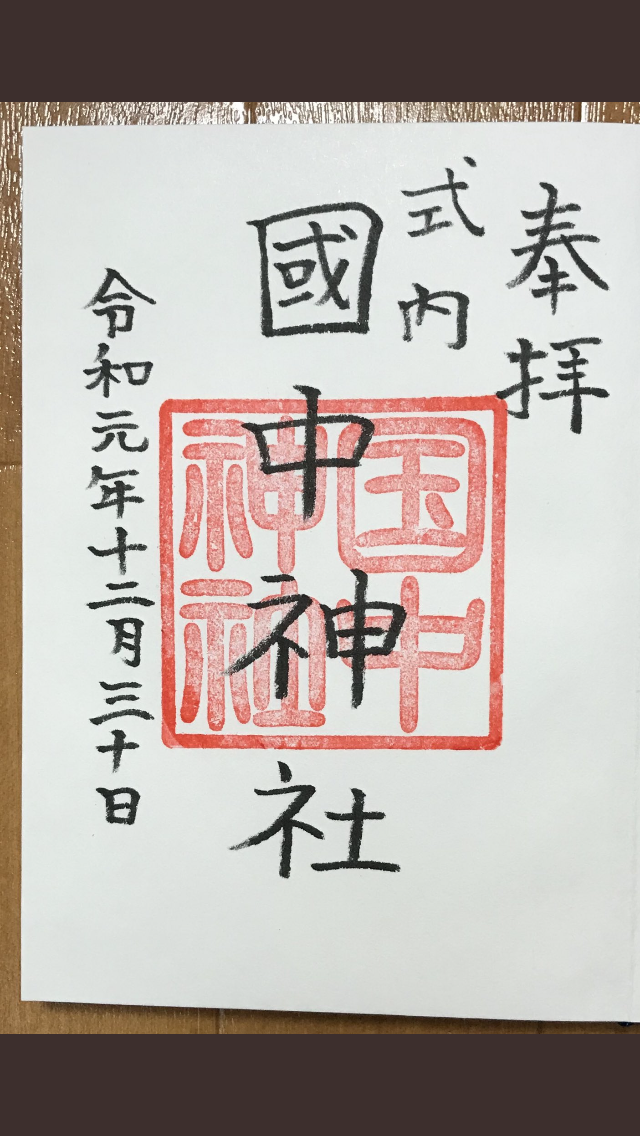 奉拝
式内
國中神社
国中神社
令和元年十二月三十日